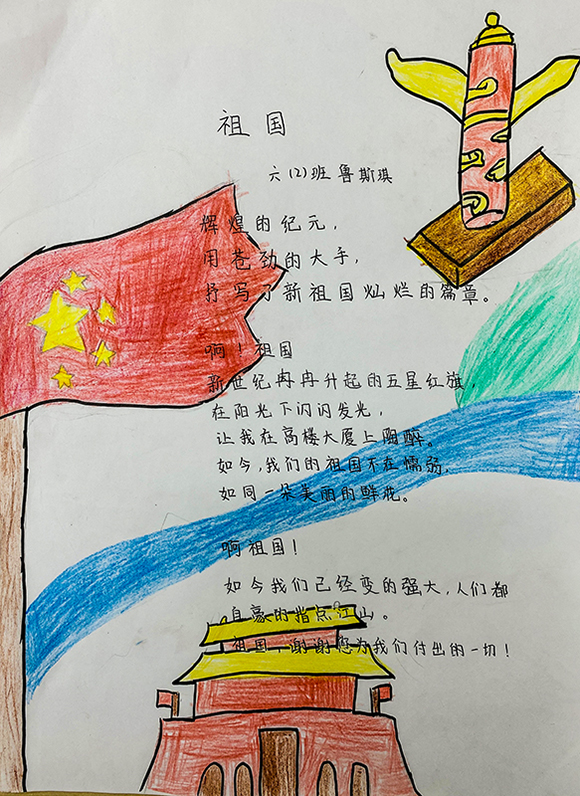 祖国
六(2)班 鲁斯琪
辉煌的纪元，
用苍劲的大手，
抒写了新祖国灿烂的篇章。
啊！祖国
新世纪冉冉升起的五星红旗，
在阳光下闪闪发光，
让我在高楼大厦上陶醉。
如今，我们的祖国不在懦弱，
如同一朵美丽的鲜花。
啊祖国！
如今我们已经变的强大，人们都
自豪的指点江山。
祖国，谢谢您为我们付出的一切！